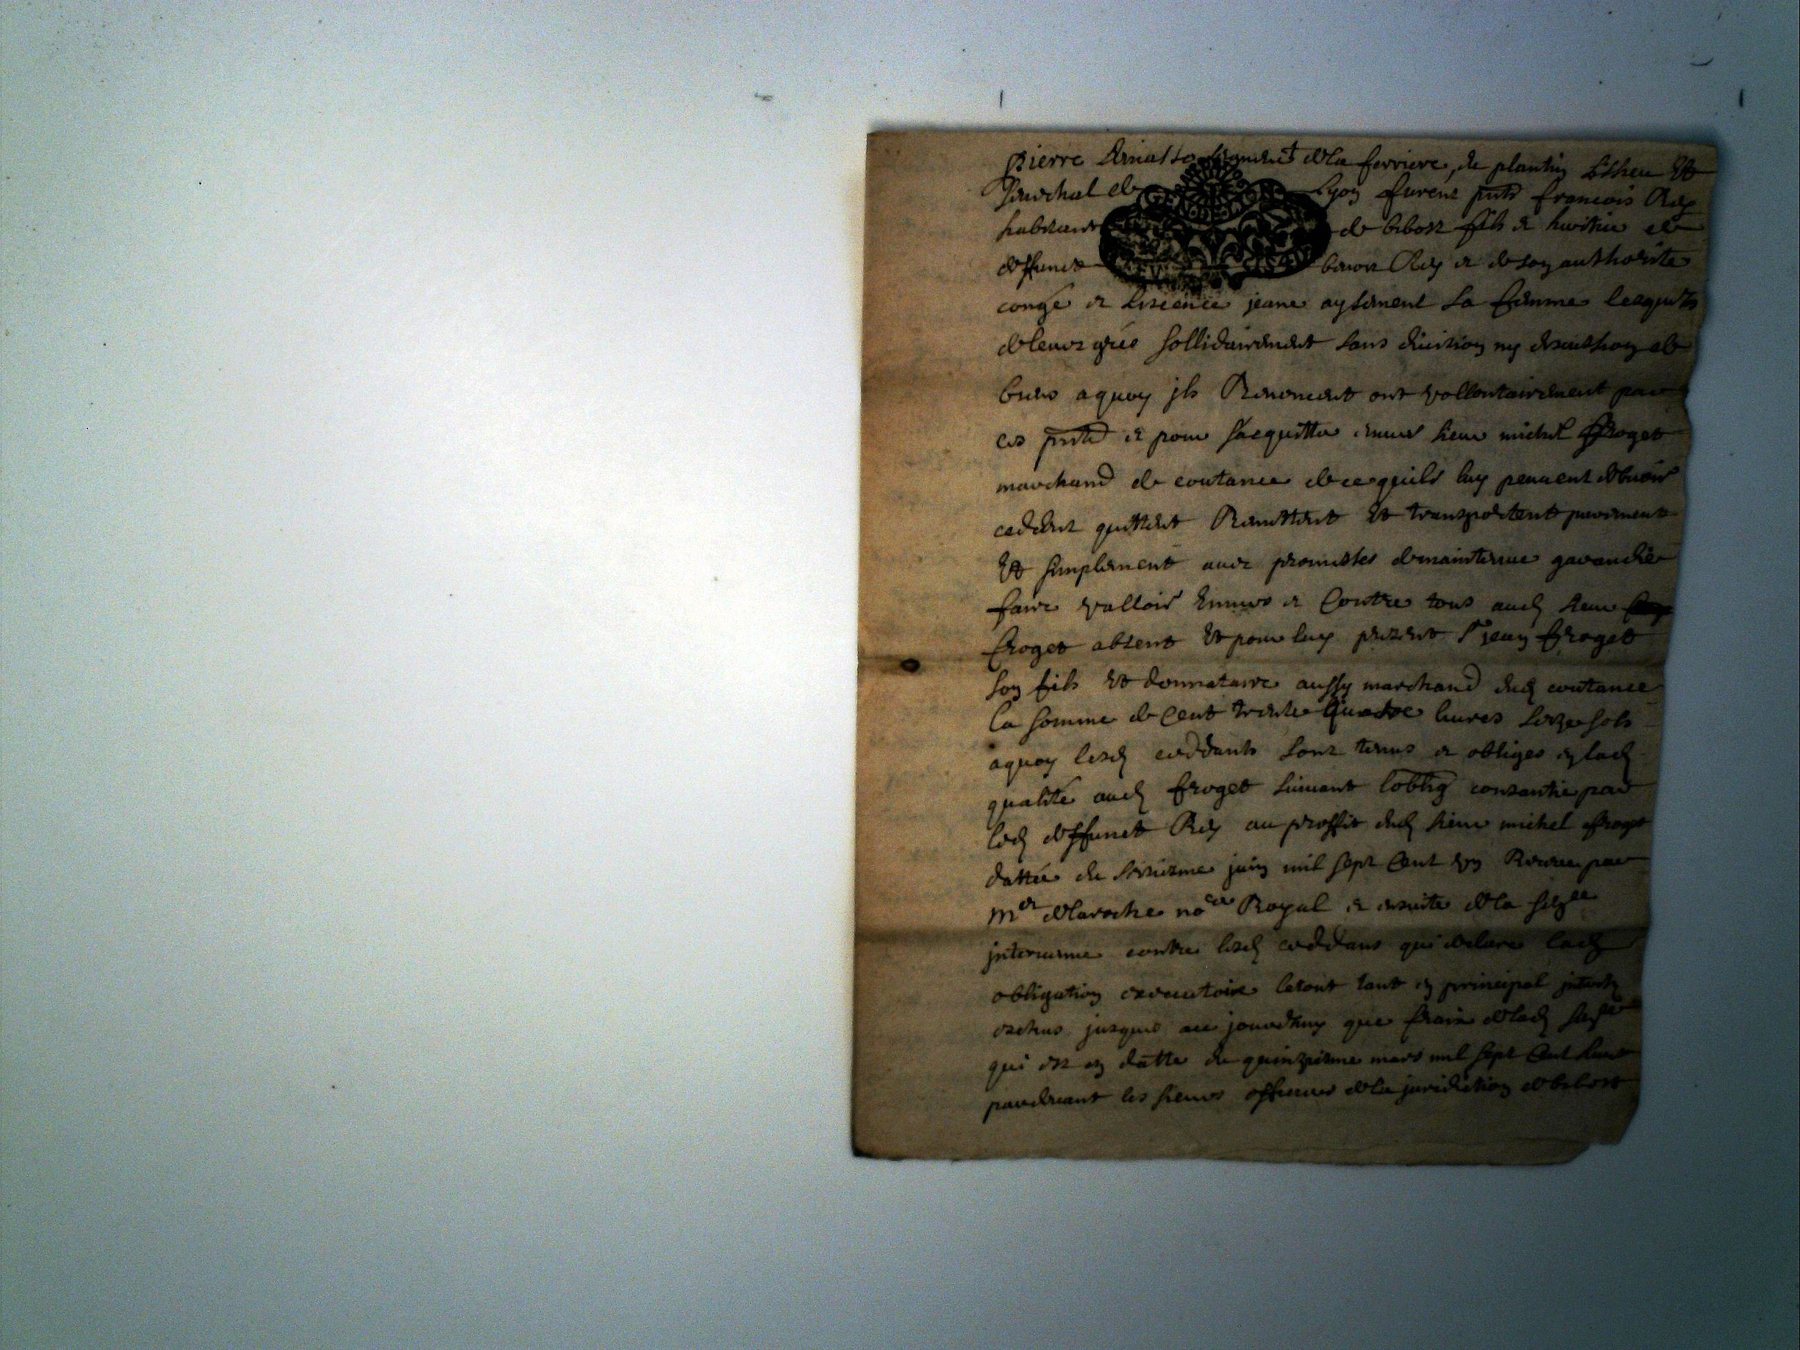 Pierre de la ferriere, de plantin
furent pnts francois Rey
habitant de bibost fils et heritier de
deffunct Rey et de son authorité
congé et liscence jeane aysament sa femme lesquels
de leurs grés sollidairement sans division ny discution de
biens a quoy ils Renoncent ont vollontairement par
ces pntes et pour sacquitter envers sieur michel ffroget
marchand de coutance de ce quils luy peuvent debvoir
ceddent quittent Remettent Et transportent purement
Et simplement avec promesses de maintenue garandie
faire valloir Envers et Contre tous aud sieur
froget absent Et pour luy present sr jean froget
son fils Et donnataire aussy marchand dud coutance
la somme de Cent trente quatre livres seize sols
a quoy lesd ceddants sont tenus et obligés en lad
qualité aud froget suivant loblig consantie par
led deffunct Rey au proffit dud sieur michel froget
dattée du juin mil sept Cent un Receue par
Me delaroche nore Royal et ensuite de la
intervenue contre lesd ceddans qui declare lad
obligation executoire le tout tant en principal
eschus jusques au jourdhuy que frais de lad
qui est en datte du quinzieme mars mil sept Cent
pardevant les sieurs officiers de la juridiction de bibost